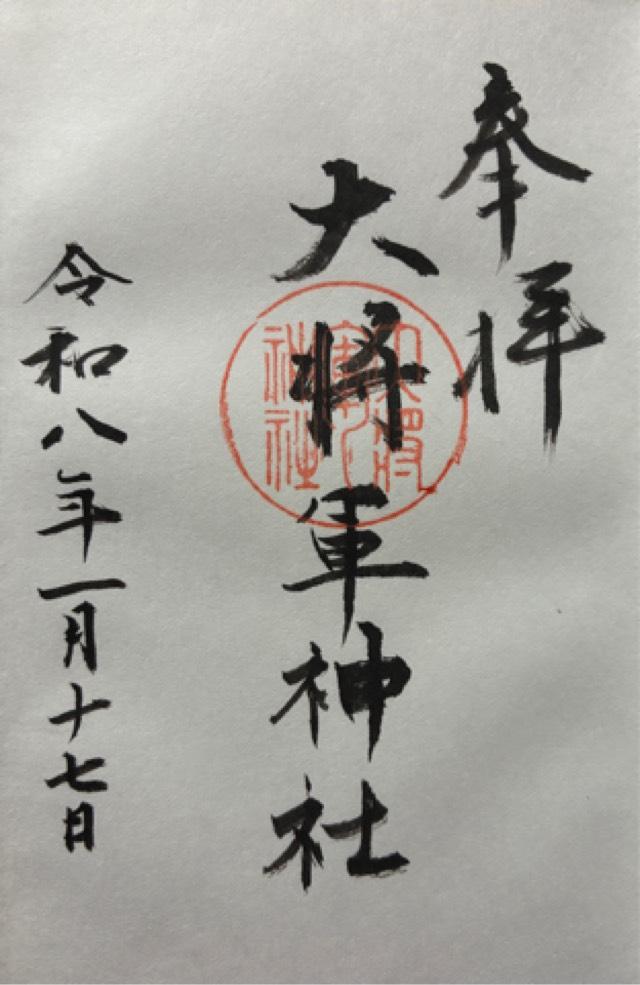 奉拝
大将軍神社
大将軍神社
令和八年一月十七日